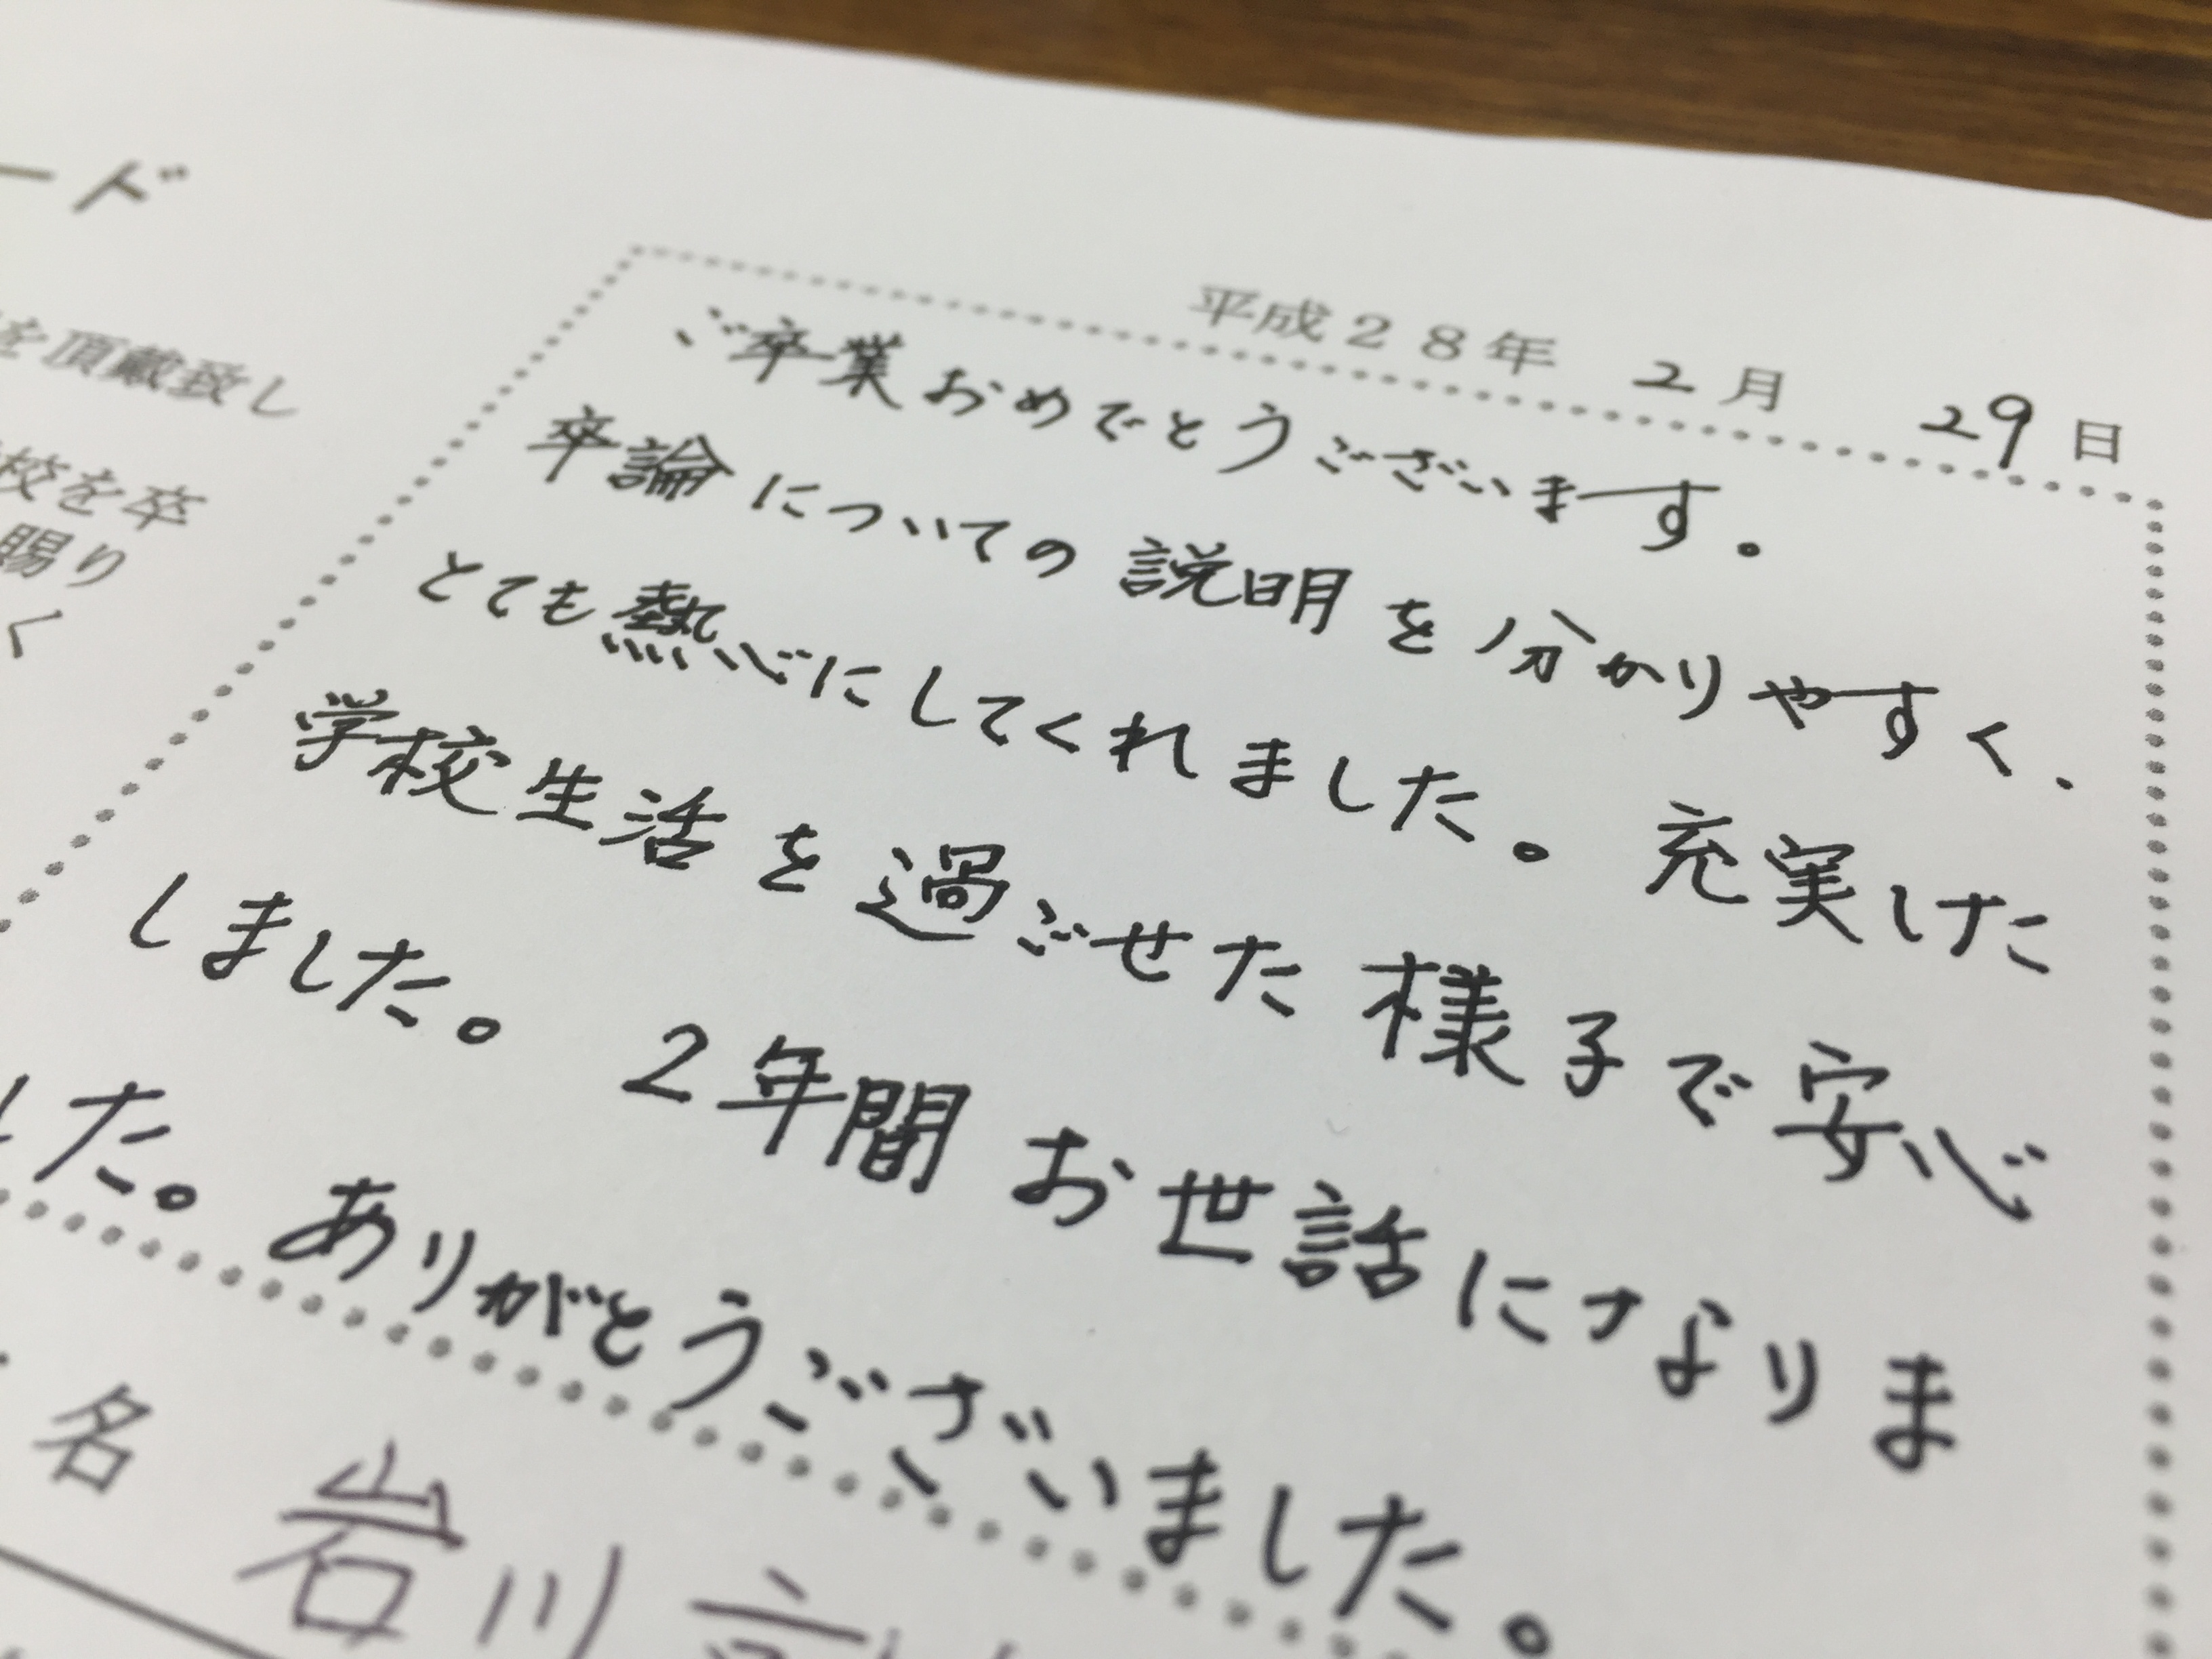 ード
平成２８年 2月 29日
を頂戴致し
校を卒
賜り
く
ご卒業おめでとうございます。
卒論についての説明を分かりやすく、
とても熱心にしてくれました。充実した
学校生活を過ごせた様子で安心
しました。2年間お世話になりま
した。ありがとうございました。
名 岩川